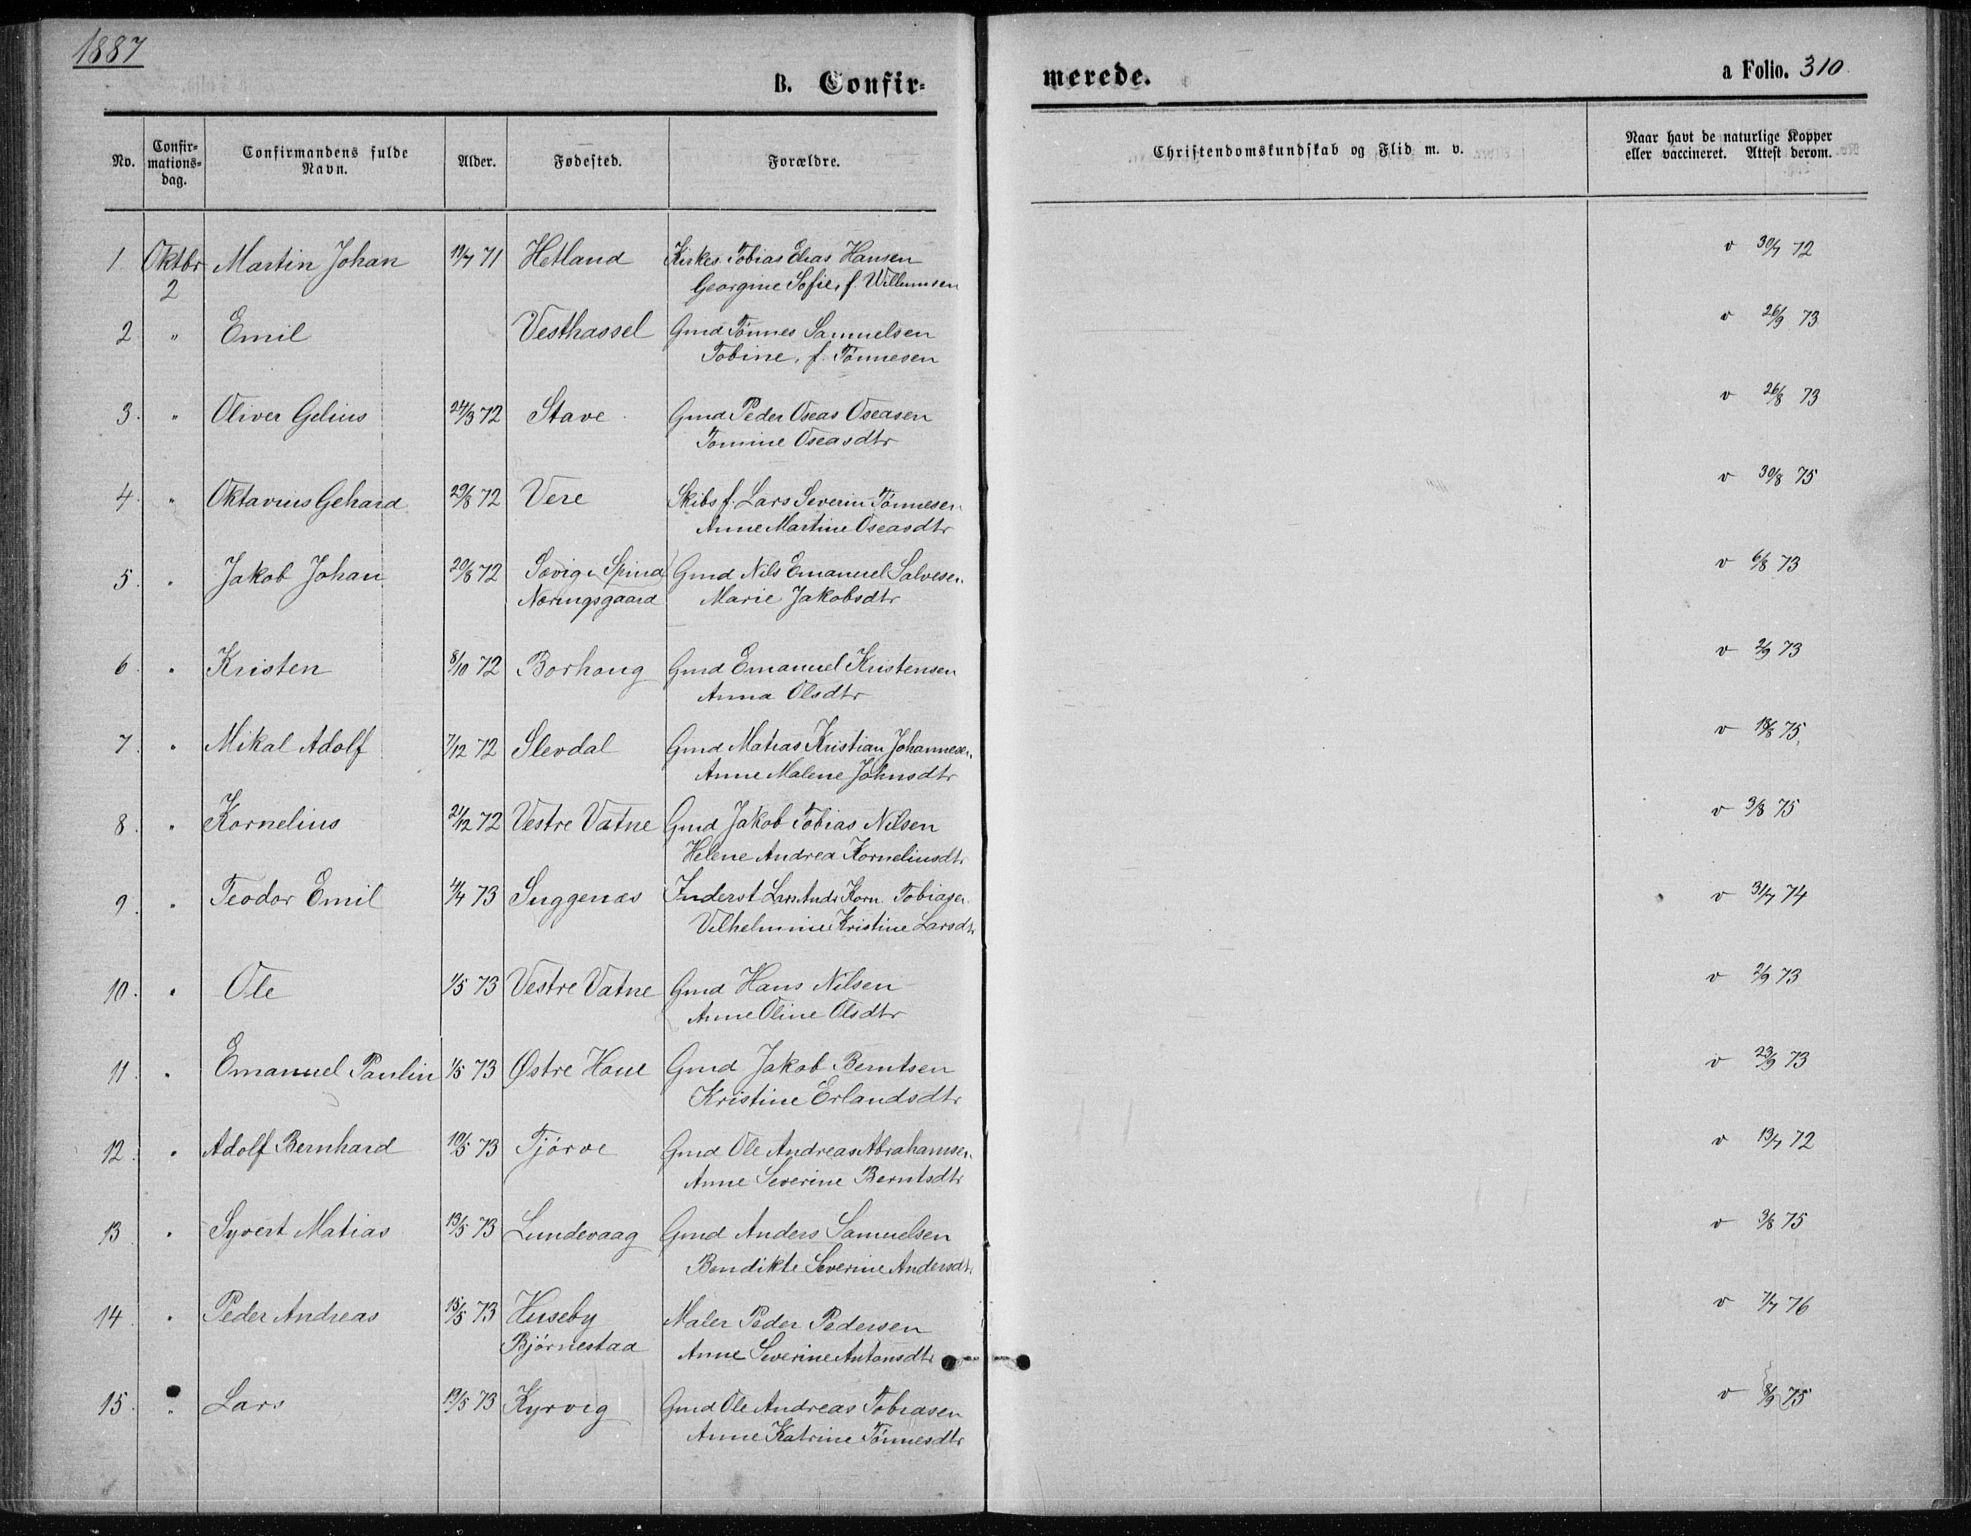 1887
B. Confir-
merede.
a Folio. 310
No.
Confir-
mations-
dag.
Confirmandens fulde
Navn.
Alder.
Fødested.
Forældre.
Christendomskundskab og Flid m. v.
Naar havt de naturlige Kopper
eller vaccineret. Attest derom.
1 Oktbr Martin Johan 19/7 71 Hetland Kirkes. Tobias Elias Hansen v 30/7 72
2 Georgine Sofie, f. Willumsen
2 " Emil Vesthassel Gmd Tønnes Samuelsen v 26/9 73
Tobine, f. Tønnesen
3. " Oliver Gelius 24/3 72 Stave Gmd Peder Oseas Oseasen v 26/8 73
Tomine Oseasdtr
4. " Oktavius Gehard 29/8 72 Vere Skibsf. Lars Severin Tønnesen v 30/8 75
Anne Martine Oseasdtr
5. " Jakob Johan 20/8 72 Sævig i Spind Gmd Nils Emanuel Salvesen v 6/8 73
Næringsgaard Marie Jakobsdtr
6. " Kristen 8/10 72 Borhaug Gmd Emanuel Kristensen v 2/9 73
Anna Olsdtr
7. " Mikal Adolf 7/12 72 Slevdal Gmd Matias Kristian Johannesen v 18/8 75
Anne Malene Johnsdtr
8. " Kornelius 21/12 72 Vestre Vatne Gmd Jakob Tobias Nilsen v 3/8 75
Helene Andrea Korneliusdtr
9. " Teodor Emil 4/4 73 Suggenæs Inderst Lars Andr Korn. Tobiasen v 31/7 74
Vilhelmine Kristine Larsdtr
10. " Ole 1/5 73 Vestre Vatne Gmd Hans Nilsen v 2/9 73
Anne Oline Olsdtr
11. " Emanuel Paulin 1/5 73 Østre Haue Gmd Jakob Berntsen v 23/9 73
Kristine Erlandsdtr
12. " Adolf Bernhard 10/5 73 Tjørve Gmd Ole Andreas Abrahamsen v 13/7 72
Anne Severine Berntsdtr
13 " Syvert Matias 13/5 73 Lundevaag Gmd Anders Samuelsen v 3/8 75
Bendikte Severine Andersdtr
14 " Peder Andreas 15/5 73 Huseby Maler Peder Pedersen v 7/7 76
Bjørnestad Anne Severine Antonsdtr
15. " Lars 19/5 73 Kyrvig Gmd Ole Andreas Tobiasen v 8/9 75
Anne Katrine Tønnesdtr